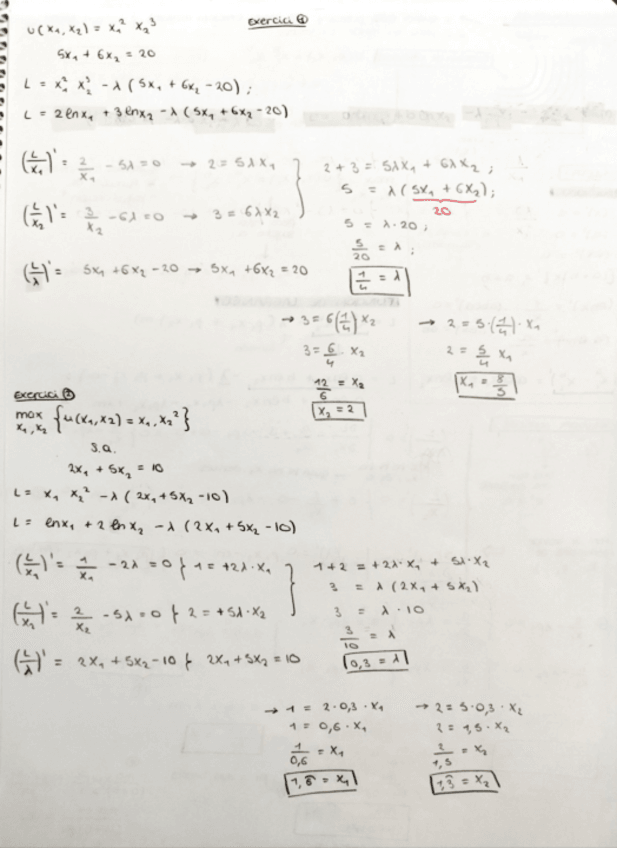 exercici ①
u(x₁, x₂) = x₁² x₂³
5x₁ + 6x₂ = 20
L = x₁² x₂³ - λ (5x₁ + 6x₂ - 20);
L = 2lnx₁ + 3lnx₂ - λ (5x₁ + 6x₂ - 20)
(L/x₁)' = 2/x₁ - 5λ = 0 → 2 = 5λx₁
(L/x₂)' = 3/x₂ - 6λ = 0 → 3 = 6λx₂
(L/λ)' = 5x₁ + 6x₂ - 20 → 5x₁ + 6x₂ = 20
2 + 3 = 5λx₁ + 6λx₂ ;
5 = λ (5x₁ + 6x₂);
20
5 = λ · 20 ;
5/20 = λ ;
1/4 = λ
→ 3 = 6(1/4) x₂
3 = 6/4 · x₂
12/6 = x₂
x₂ = 2
→ 2 = 5·(1/4)· x₁
2 = 5/4 x₁
x₁ = 8/5
exercici ②
max x₁, x₂ {u(x₁, x₂) = x₁, x₂²}
s.a.
2x₁ + 5x₂ = 10
L = x₁ x₂² - λ (2x₁ + 5x₂ - 10)
L = lnx₁ + 2 lnx₂ - λ (2x₁ + 5x₂ - 10)
(L/x₁)' = 1/x₁ - 2λ = 0 } 1 = +2λ·x₁
(L/x₂)' = 2/x₂ - 5λ = 0 } 2 = +5λ·x₂
(L/λ)' = 2x₁ + 5x₂ - 10 } 2x₁ + 5x₂ = 10
1 + 2 = +2λ·x₁ + 5λ·x₂
3 = λ (2x₁ + 5x₂)
3 = λ · 10
3/10 = λ
0,3 = λ
→ 1 = 2·0,3·x₁
1 = 0,6·x₁
1/0,6 = x₁
1,6̂ = x₁
→ 2 = 5·0,3·x₂
2 = 1,5·x₂
2/1,5 = x₂
1,3̂ = x₂